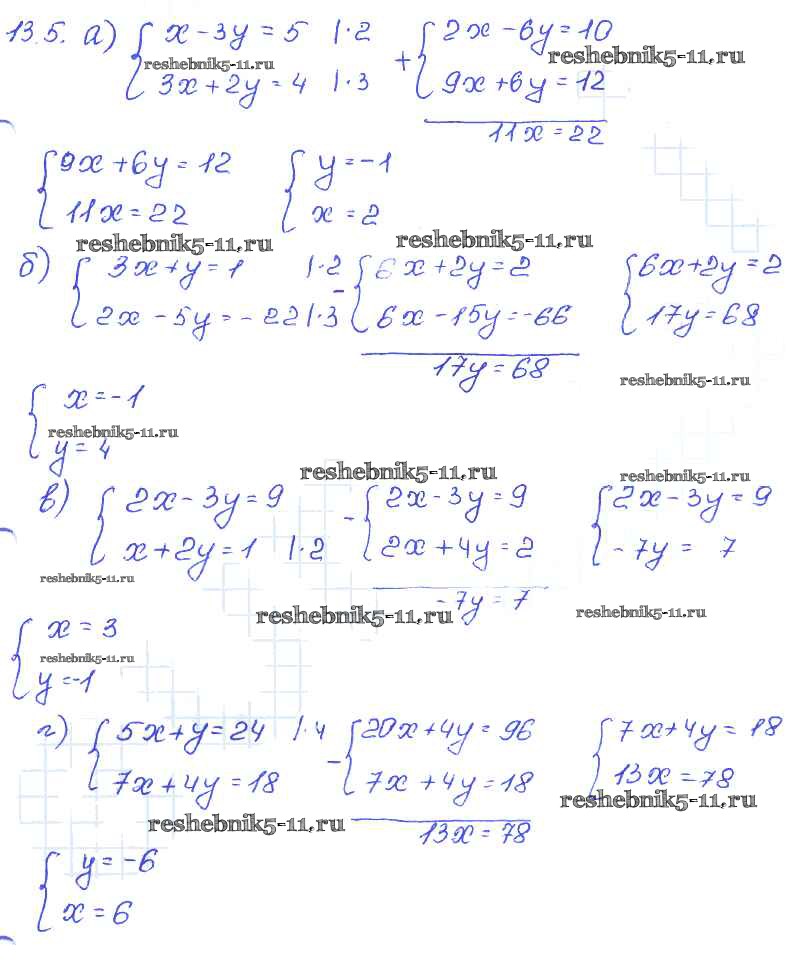 13.5. а) { x - 3y = 5 |·2 + { 2x - 6y = 10
reshebnik5-11.ru reshebnik5-11.ru
3x + 2y = 4 |·3 9x + 6y = 12
11x = 22
{ 9x + 6y = 12 { y = -1
11x = 22 x = 2
reshebnik5-11.ru reshebnik5-11.ru
б) { 3x + y = 1 |·2 - { 6x + 2y = 2 { 6x + 2y = 2
2x - 5y = -22 |·3 6x - 15y = -66 17y = 68
17y = 68
reshebnik5-11.ru
{ x = -1
reshebnik5-11.ru
y = 4
reshebnik5-11.ru reshebnik5-11.ru
в) { 2x - 3y = 9 - { 2x - 3y = 9 { 2x - 3y = 9
x + 2y = 1 |·2 2x + 4y = 2 -7y = 7
reshebnik5-11.ru
-7y = 7
reshebnik5-11.ru reshebnik5-11.ru
{ x = 3
reshebnik5-11.ru
y = -1
г) { 5x + y = 24 |·4 - { 20x + 4y = 96 { 7x + 4y = 18
7x + 4y = 18 7x + 4y = 18 13x = 78
reshebnik5-11.ru
reshebnik5-11.ru 13x = 78
{ y = -6
x = 6